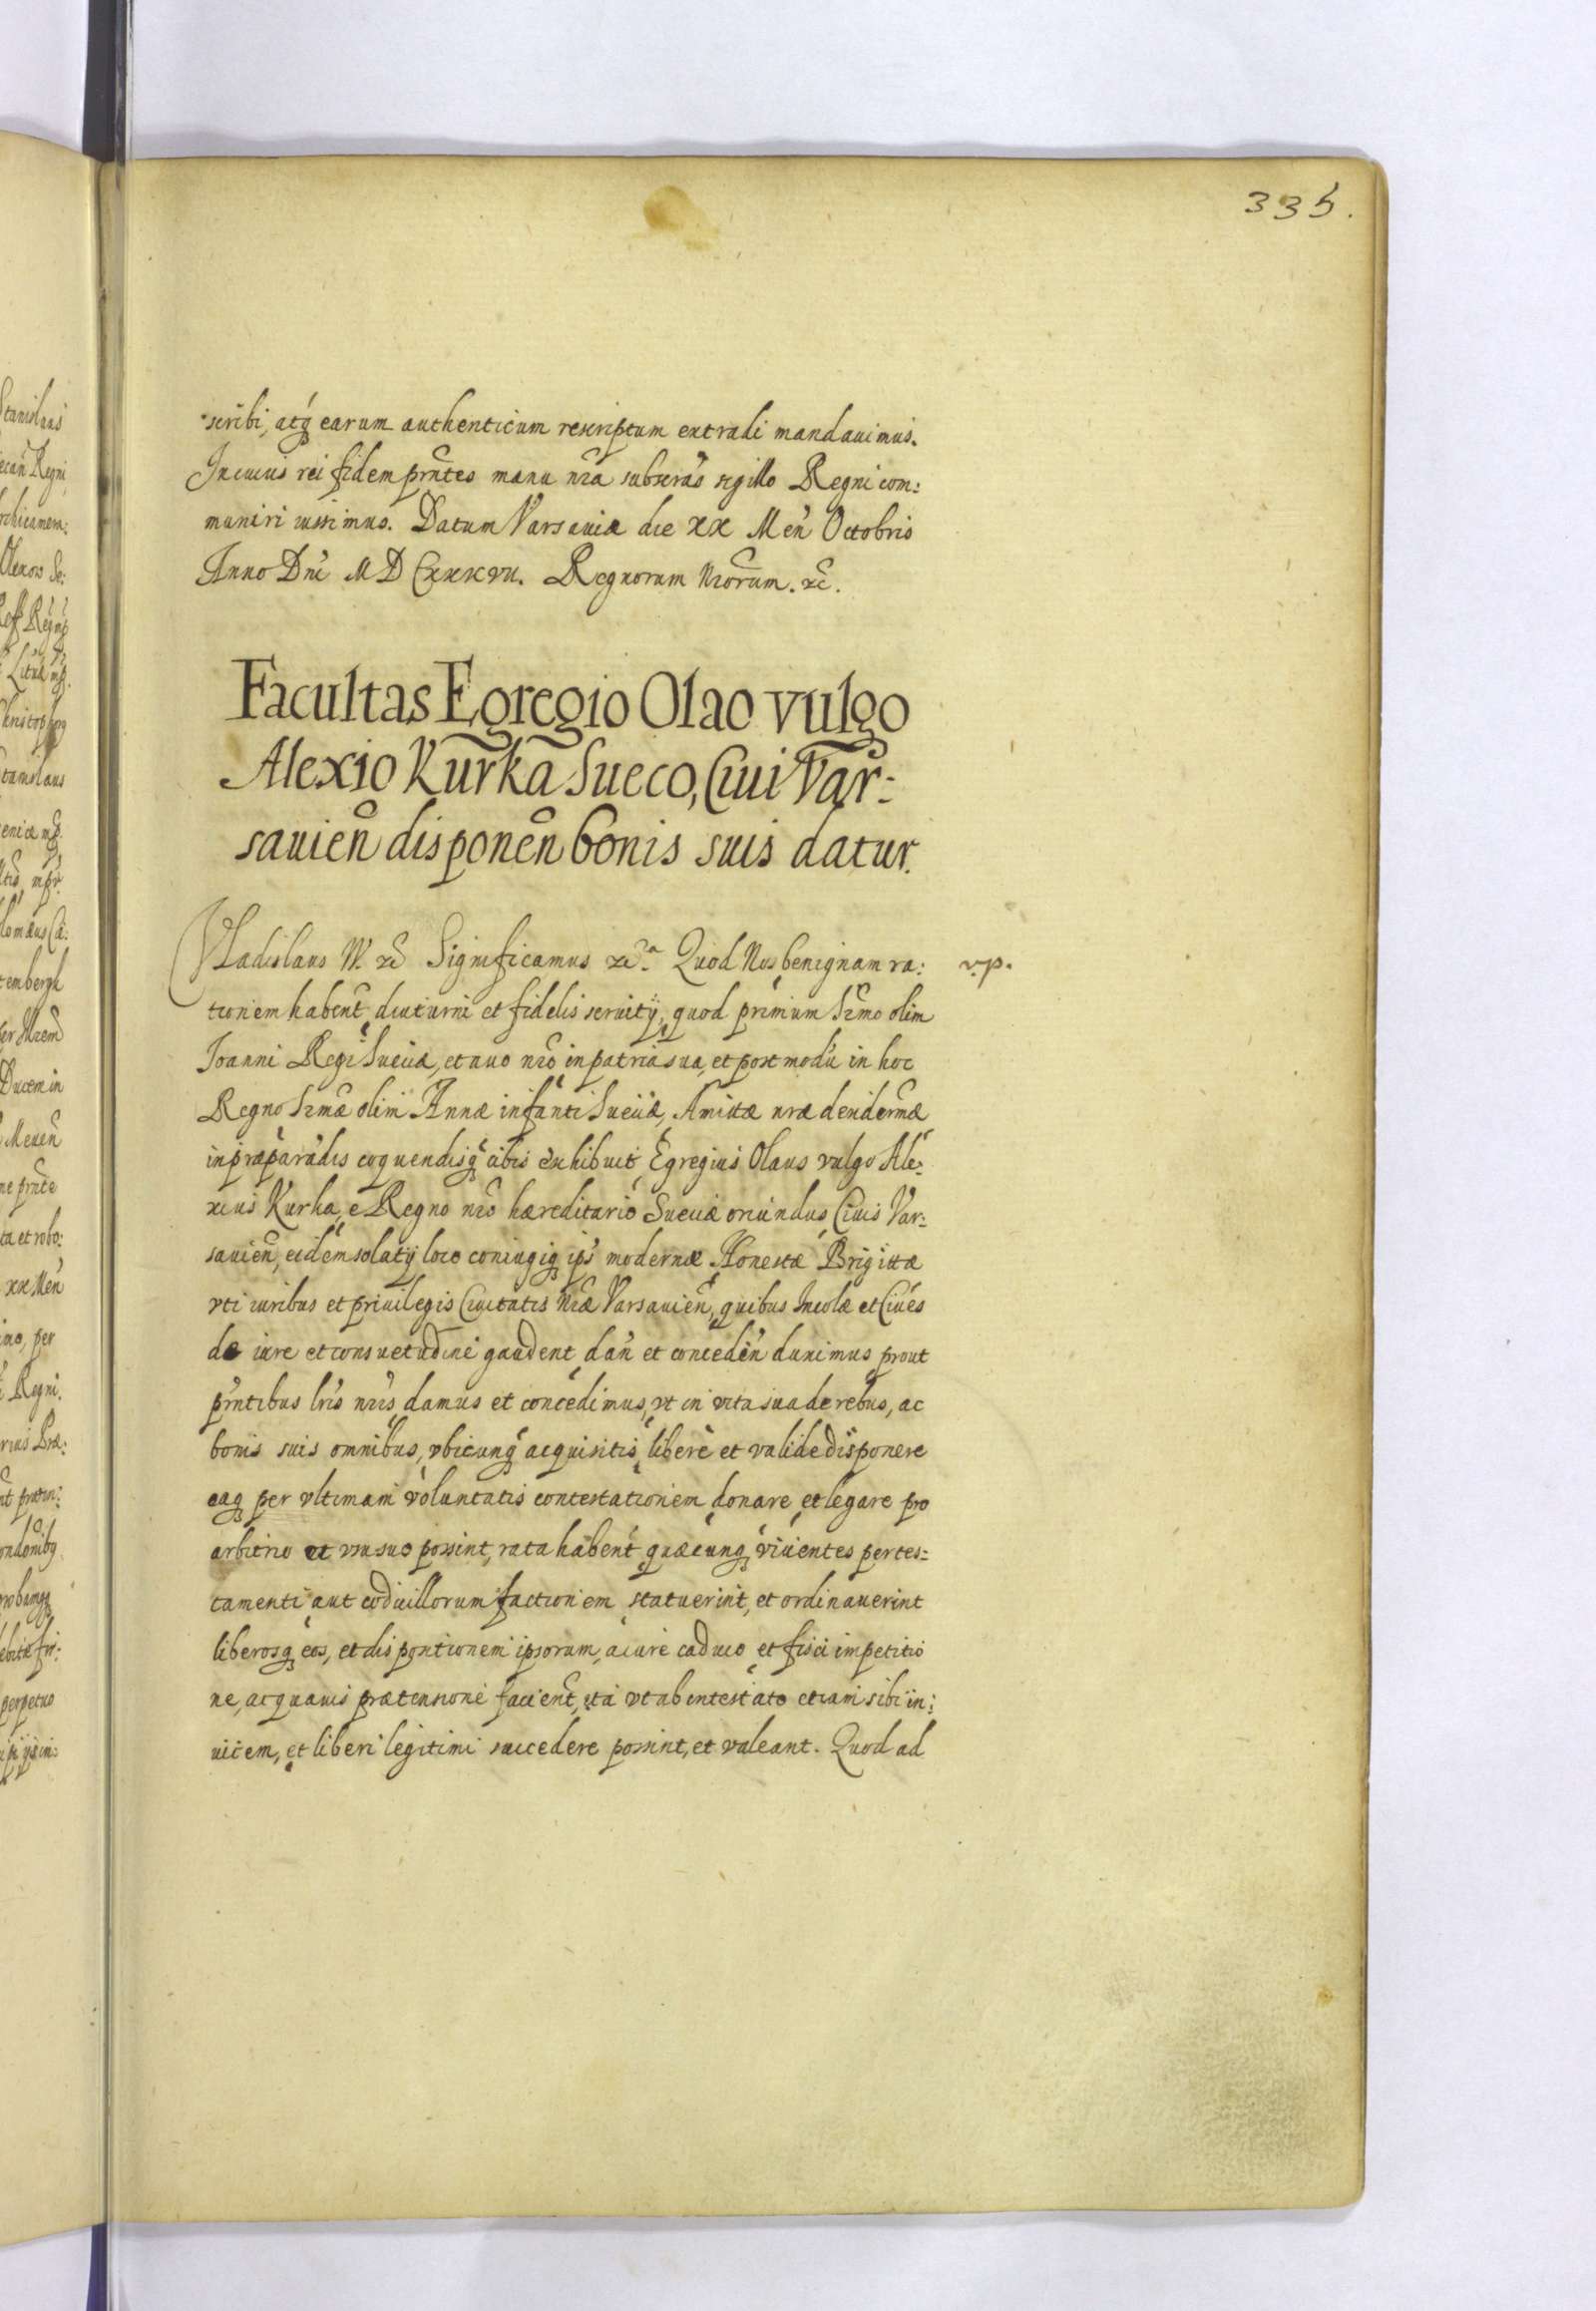 335.
scribi, atq earum authenticum rescriptum extradi mandauimus.
In cuius rei fidem prntes manu nra subscras sigillo Regni com:
muniri iussimus. Datum Varsauiæ die XX Men Octobris
Anno Dni MDCXXXVII. Regnorum Nrorum. &c.
Facultas Egregio Olao vulgo
Alexio Kurka Sueco, Ciui Var:
sauien disponen bonis suis datur.
Vladislaus IV. &c Significamus &c.a Quod Nos benignam ra: v.p.
tionem habent diuturni et fidelis seruitÿ, quod primum Srmo olim
Joanni Regi Sueciæ, et auo nro in patria sua, et postmodu in hoc
Regno Srmæ olim Annæ infanti Sueciæ, Amittæ nræ desidermæ
in præparadis coquendisq cibis exhibuit Egregius Olaus vulgo Ale:
xius Kurka, e Regno nro hæreditario Sueciæ oriundus, Ciuis Var:
sauien, eidem solatÿ loco coniugiq ips modernæ Honestæ Brigittæ
vti iuribus et priuilegis Ciuitatis Nræ Varsauien, quibus Incolæ et Ciues
de iure et consuetudine gaudent dan et conceden duximus prout
prntibus lris nris damus et concedimus, vt in vita sua de rebus, ac
bonis suis omnibus, vbicunq acquisitis libere et valide disponere
eaq per vltimam voluntatis contestationem donare et legare pro
arbitrio et vsu suo possint, rata habent quæcunq viuentes per tes:
tamenti aut codicillorum factionem statuerint, et ordinauerint
liberosq eos, et dispositionem ipsorum, a iure caduco et fisci impetitio
ne, ac quauis prætensione facient, ita vt ab intestato etiam sibi in:
uicem, et liberi legitimi succedere possint, et valeant. Quod ad